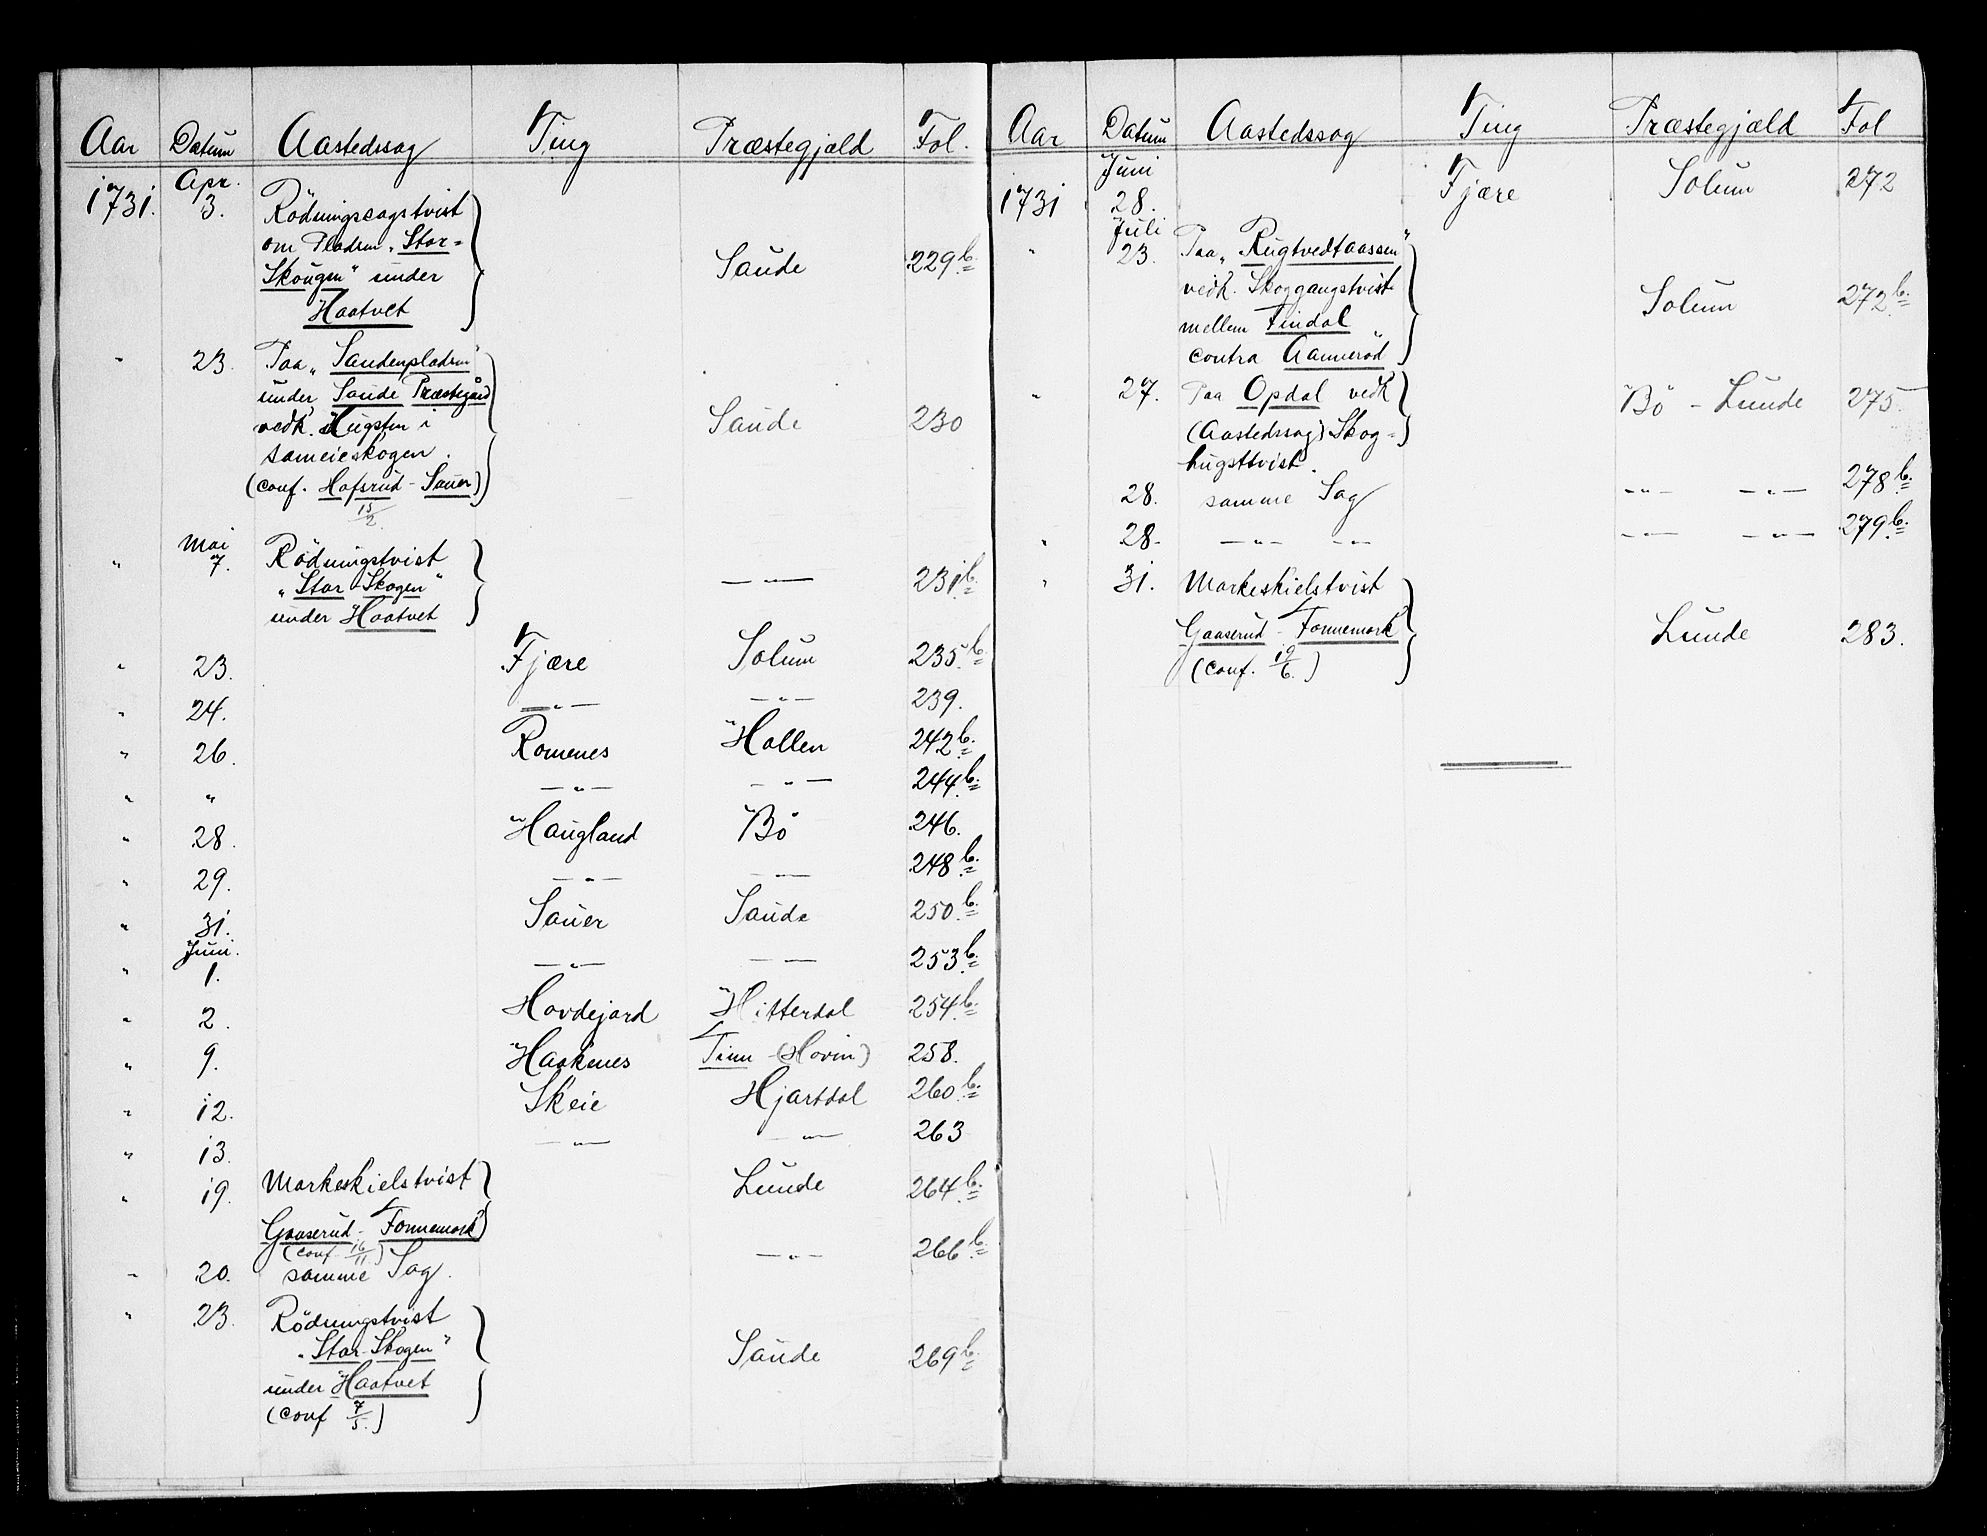 Aar Datum Aastedssag Ting Præstegjæld Fol.
1731. Apr. 3. Rödningssagstvist
om Pladsen „Stor=
Skougen" under Saude 229b.
Haatvet
" 23. Paa „Saudenpladsen"
under Saude Præstegård
vedk. Hugsten i Saude 230
sameieskogen.
(conf. Hofsrud - Sauer)
15/2.
" Mai 7. Rödningstvist
„Stor-Skogen" — " — 231b.
under Haatvet
" 23. Fjære Solum 235b.
" 24. — " — — " — 239.
" 26. Romenes Hollen 242b.
" " — " — — " — 244b.
" 28. Haugland Bö 246.
" 29. — " — — " — 248b.
" 31. Sauer Saude 250b.
" Juni. 1. — " — — " — 253b.
" 2. Hovdejord Hitterdal 254b.
" 9. Haakenes Tinn - (Hovin) 258.
" 12. Skeie Hjartdal 260b.
" 13. — " — — " — 263
" 19. Markeskielstvist Lunde 264b.
Gaaserud - Fonnemork
(conf. 16/11)
" 20. samme Sag. — " — 266b.
" 23. Rödningstvist
„Stor-Skogen" Saude 269b.
under Haatvet
(conf 7/5.)
Aar Datum Aastedssag Ting Præstegjæld Fol
1731 Juni 28. Fjære Solum 272
" Juli 23. Paa „Rugtvedtaassen"
vedk. Skoggangstvist Solum 272b.
mellem Findal
contra Aannerød"
" 27. Paa Opdal vedk Bö - Lunde 275.
(Aastedssag) Skog=
hugsttvist.
28. samme Sag — " — — " — 278b.
" 28. — " — — " — — " — — " — 279b.
" 31. Markeskielstvist
Gaaserud - Fonnemork Lunde 283.
(conf. 19/6.)